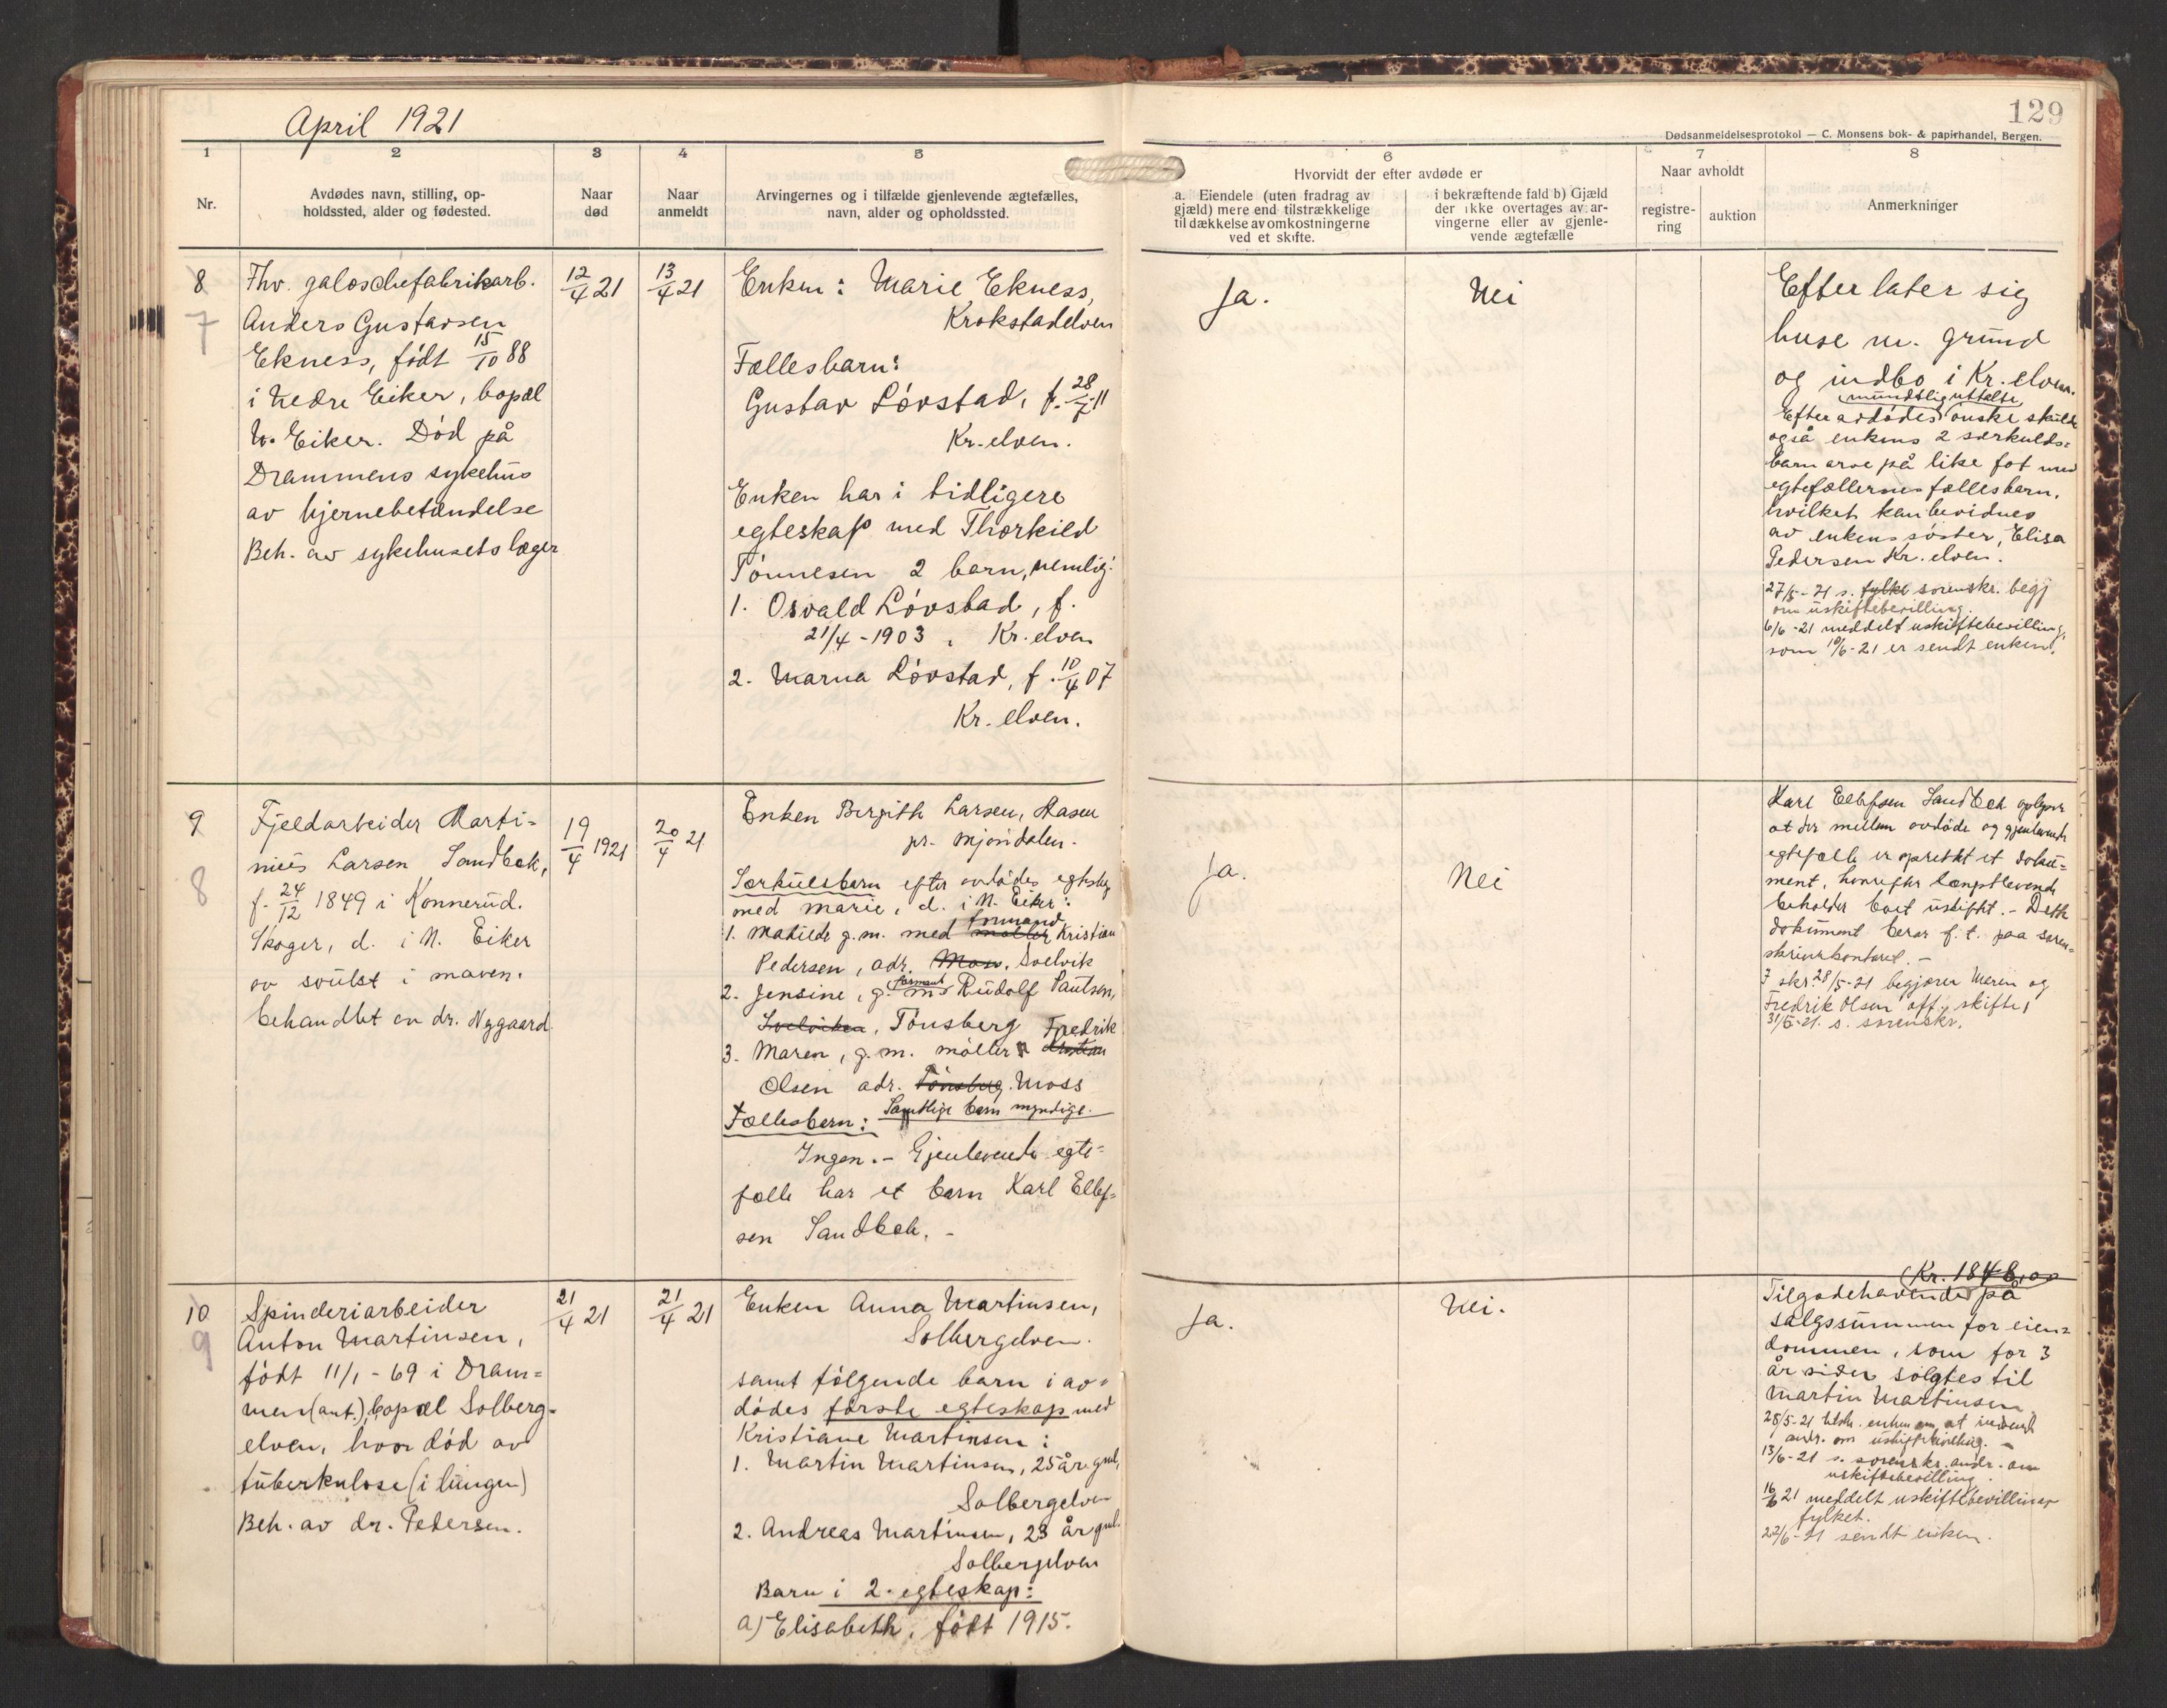 April 1921
129
Dødsanmeldelsesprotokol — C. Monsens bok- & papirhandel, Bergen.
1
2
3
4
5
6
7
8
Nr.
Avdødes navn, stilling, op-
holdssted, alder og fødested.
Naar
død
Naar
anmeldt
Arvingernes og i tilfælde gjenlevende ægtefælles,
navn, alder og opholdssted.
Hvorvidt der efter avdøde er
a. Eiendele (uten fradrag av
gjæld) mere end tilstrækkelige
til dækkelse av omkostningerne
ved et skifte.
i bekræftende fald b) Gjæld
der ikke overtages av ar-
vingerne eller av gjenle-
vende ægtefælle
Naar avholdt
registre-
ring
auktion
Anmerkninger
8
7
Fhv. galoschefabrikarb.
Anders Gustavsen
Ekness, født 15/10 88
i Nedre Eiker, bopæl
N. Eiker. Död på
Drammens sykehus
av hjernebetændelse
Beh. av sykehusets læger
12/4 21
13/4 21
Enken: Marie Ekness,
Krokstadelven
Fællesbarn:
Gustav Lövstad, f. 28/7 11
Kr. elven.
Enken har i tidligere
egteskap med Thorkild
Tönnesen 2 barn, nemlig:
1. Osvald Lövstad, f.
21/4 - 1903, Kr. elven
2. Marna Lövstad, f. 10/4 07
Kr. elven.
Ja.
Nei
Efterlater sig
huse m. grund
og indbo i Kr. elven.
mundtlig uttalte
Efter avdödes önske skulde
også enkens 2 særkulds-
barn arve på like fot med
egtefællernes fællesbarn,
hvilket kan bevidnes
av enkens söster, Elisa
Pedersen Kr. elven.
27/5 - 21 s. fylke sorenskr. begj
om uskiftebevilling.
6/6 - 21 meddelt uskiftebevilling,
som 10/6 - 21 er sendt enken.
9
8
Fjeldarbeider Marti-
nius Larsen Sandbek,
f. 24/12 1849 i Konnerud.
Skoger, d. i N. Eiker
av svulst i maven.
behandlet av dr. Nygaard
19/4 1921
20/4 21
Enken Birgith Larsen, Aasen
pr. Mjöndalen.
Særkulsbarn efter avdödes egteskap
med Marie, d. i N. Eiker:
formand
1. Matilde g. m. med möller Kristian
Pedersen, adr. Moss. Svelvik
formand
2. Jensine, g. m. Rudolf Paulsen,
Svelviken, Tönsberg
Fredrik
3. Maren, g. m. möller Kristian
Olsen adr. Tönsberg. Moss
Samtlige barn myndige.
Fællesbarn:
Ingen. - Gjenlevende egte-
fælle har et barn Karl Ellef-
sen Sandbek. -
Ja.
Nei
Karl Ellefsen Sandbek oplyser
at der mellem avdöde og gjenlevende
egtefælle er oprettet et doku-
ment, hvorefter længstlevende
beholder boet uskiftet. - Dette
dokument beror f. t. paa soren-
skriverkontoret. -
I skr. 28/5 - 21 begjærer Maren og
Fredrik Olsen off. skifte,
31/5 - 21. s. sorenskr.
10
9
Spinderiarbeider
Anton Martinsen,
født 11/1 - 69 i Dram-
men (ant.), bopæl Solberg-
elven, hvor död av
tuberkulose (i lungen)
Beh. av dr. Pedersen.
21/4 21
21/4 21
Enken Anna Martinsen,
Solbergelven.
samt følgende barn i av-
dödes første egteskap med
Kristiane Martinsen:
1. Martin Martinsen, 25 år gml,
Solbergelven
2. Andreas Martinsen, 23 år gml.
Solbergelven
Barn i 2. egteskap:
a) Elisabeth, født 1915.
Ja.
Nei.
Kr. 1848,00
Tilgodehavende på
salgssummen for eien-
dommen, som for 3
år siden solgtes til
Martin Martinsen.
25/5 - 21 enken om at
andr. om uskiftebevilling. -
13/6 - 21 s. sorenskr. andr. om
uskiftebevilling.
16/6 21 meddelt uskiftebevilling
fylket.
22/6 - 21 sendt enken.